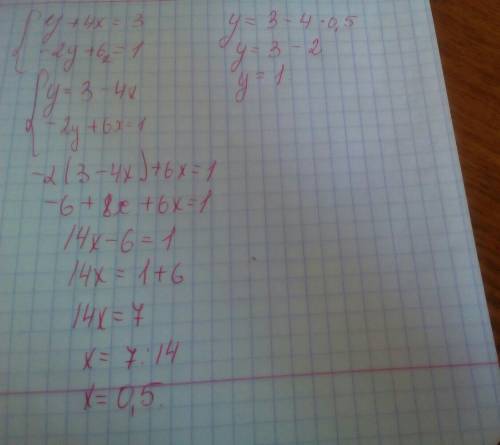 { y + 4x = 3
-2y + 6x = 1
{ y = 3 - 4x
-2y + 6x = 1
-2(3 - 4x) + 6x = 1
-6 + 8x + 6x = 1
14x - 6 = 1
14x = 1 + 6
14x = 7
x = 7 : 14
x = 0,5.
y = 3 - 4 · 0,5
y = 3 - 2
y = 1